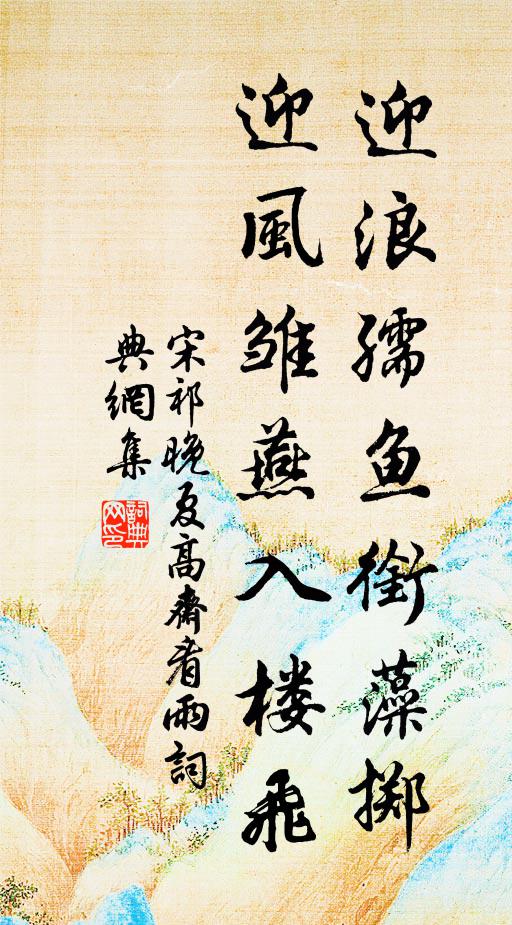 迎浪孺鱼銜藻掷
迎風雏燕入楼飛
宋祁晚夏高齋看雨詞
典網集
詞典网印